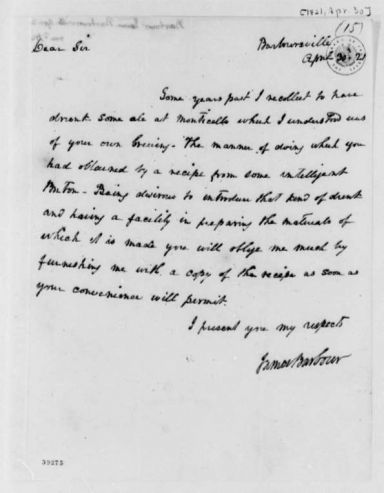 [1821, Apr 30]
(15)
Barboursville
April 30-21
Dear Sir
Some years past I recollect to have
drunk some ale at Monticello which I understood was
of your own brewing - The manner of doing which you
had obtained by a recipe from some intelligent
Briton - Being desirous to introduce that kind of drink
and having a facility in preparing the materials of
which it is made you will oblige me much by
furnishing me with a copy of the recipe as soon as
your convenience will permit.
I present you my respects
James Barbour
39275